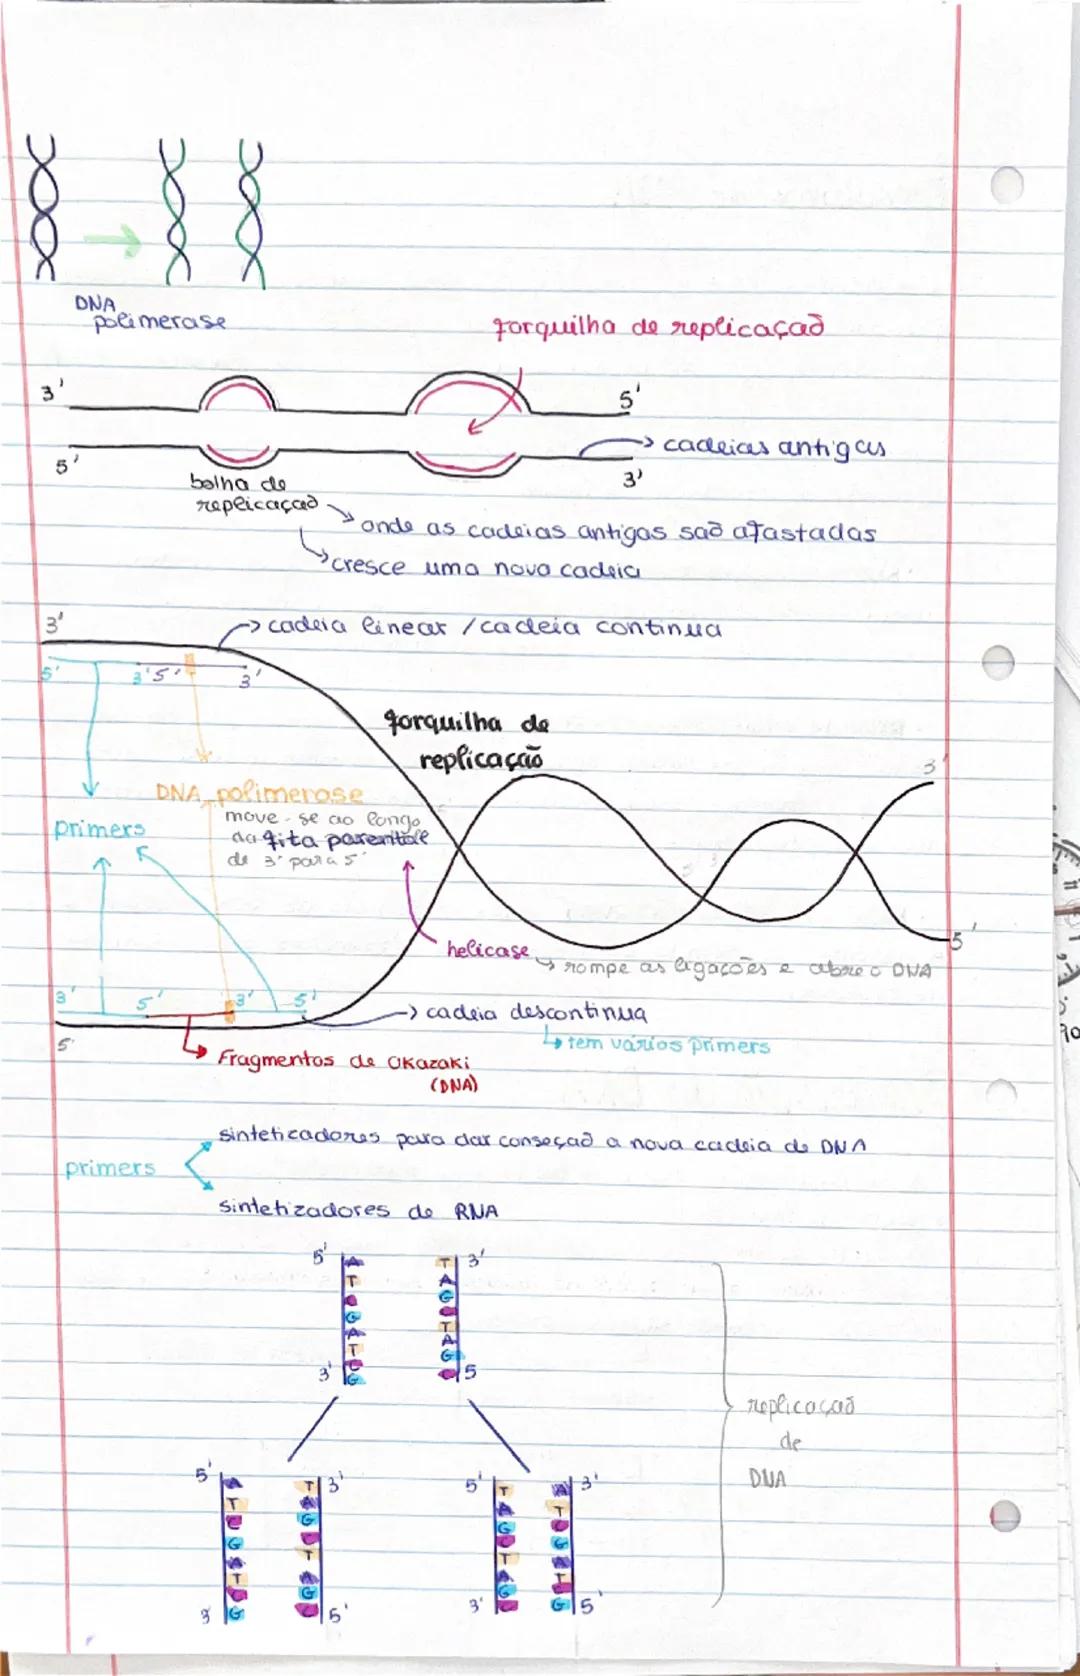 DNA
polimerase
forquilha de replicaçaõ
3'
5'
cadeias antigas
5'
3'
bolha de
replicaçaõ
onde as cadeias antigas saõ afastadas
cresce uma nova cadeia
3'
cadeia linear / cadeia continua
5'
3'
5'
3'
forquilha de
replicação
3'
DNA polimerase
move-se ao longo
da fita parental
de 3' para 5'
primers
helicase
rompe as ligações e abre o DNA
5'
3'
5'
3'
5'
cadeia descontinua
tem vários primers
5'
Fragmentos de Okazaki
(DNA)
sinteticadores para dar conseçaõ a nova cadeia de DNA
primers
sintetizadores de RNA
5'
3'
A T
T A
C G
G C
A T
T A
C G
G C
3'
5
replicaçaõ
de
DNA
5'
3'
5'
3'
A T T A
T A A T
C G G C
G C C G
A T T A
T A A T
C G G C
G C C G
3'
5'
3'
5'